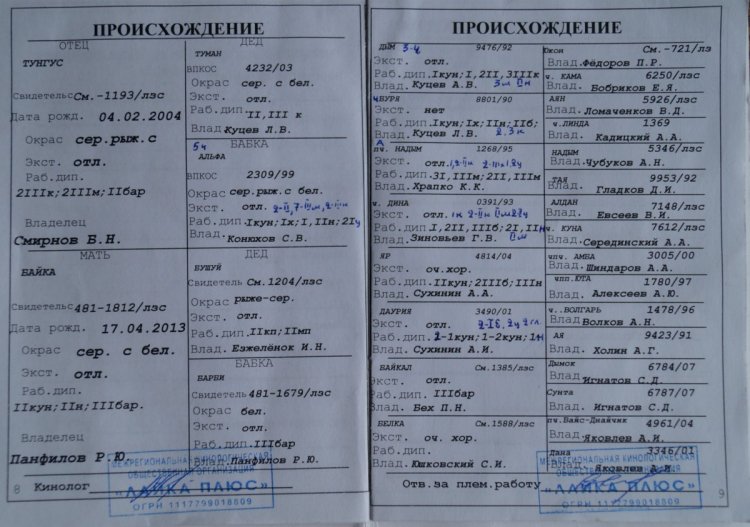 ПРОИСХОЖДЕНИЕ
ОТЕЦ
ТУНГУС
Свидетельс См.-1193/лэс
Дата рожд. 04.02.2004
Окрас сер.рыж.с
Экст. отл.
Раб.дип.
2IIIк;2IIIм;IIбар
Владелец
Смирнов Б.Н.
МАТЬ
БАЙКА
Свидетельс 481-1812/лэс
Дата рожд. 17.04.2013
Окрас сер. с бел.
Экст. отл.
Раб.дип.
IIкун;IIн;IIIбар.
Владелец
Панфилов Р.Ю.
8 Кинолог
ДЕД
ТУМАН
ВПКОС 4232/03
Окрас сер. с бел.
Экст. отл.
Раб.дип II,III к
Влад. Куцев Л.В.
БАБКА
5ч
АЛЬФА
ВПКОС 2309/99
Окрас сер.рыж.с бел.
Экст. отл.
Раб.дип. Iкун;Iх;I,IIн;2Iч
Влад. Конюхов С.В.
ДЕД
БУШУЙ
Свидетель См.1204/лэс
Окрас рыже-сер.
Экст. отл.
Раб.дип. IIкп;IIмп
Влад. Езжелёнок И.Н.
БАБКА
БАРБИ
Свидетель 481-1679/лэс
Окрас бел.
Экст. отл.
Раб.дип. IIIбар
Влад. Панфилов Р.Ю.
МЕЖРЕГИОНАЛЬНАЯ КИНОЛОГИЧЕСКАЯ
ОБЩЕСТВЕННАЯ ОРГАНИЗАЦИЯ
"ЛАЙКА ПЛЮС"
ОГРН 1117799018809
ПРОИСХОЖДЕНИЕ
ДЫМ 3-ч 9476/92
Экст. отл.
Раб.дип. Iкун;I,2II,3IIIк
Влад. Куцев А.В.
ч БУРЯ 8801/90
Экст. нет
Раб.дип. Iкун;Iх;IIн;IIб;
Влад. Куцев Л.В. 2,3к
пч. НАДЫМ 1268/95
Экст. отл.
Раб.дип. 3I,IIIм;2IIIм
Влад. Храпко К.К.
ч. ДИНА 0391/93
Экст. отл.
Раб.дип. I,2II,IIIб;2I,IIн
Влад. Зиновьев Г.В.
ЯР 4814/04
Экст. оч.хор.
Раб.дип. IIкун;2IIIб;IIIн
Влад. Сухинин А.А.
ДАУРИЯ 3490/01
Экст. отл.
Раб.дип. 2-1кун;1-2кун;1н
Влад. Сухинин А.И.
БАЙКАЛ См.1385/лэс
Экст. отл.
Раб.дип. IIIбар
Влад. Бех П.Н.
БЕЛКА См.1588/лэс
Экст. оч. хор.
Раб.дип.
Влад. Юшковский С.И.
Отв.за плем.работу
Юкон См.-721/лэ
Влад. Фёдоров П.Р.
ч. КАМА 6250/лэс
Влад. Бобриков Е.Я.
АЯН 5926/лэс
Влад. Ломаченков В.Д.
ч.ЛИНДА 1369
Влад. Кадицкий А.А.
НАДЫМ 5346/лэс
Влад. Чубуков А.Н.
ТАЯ 9953/92
Влад. Гладков Д.И.
АЛДАН 7148/лэс
Влад. Евсеев В.И.
ч. КУНА 7612/лэс
Влад. Серединский А.А.
чпч. АМБА 3005/00
Влад. Шиндаров А.А.
чпп.ЮТА 1780/97
Влад. Алексеев А.Ю.
ч..ВОЛГАРЬ 1478/96
Влад. Волков А.Н.
АЯ 9423/91
Влад. Холин А.Г.
Дымок 6784/07
Влад. Игнатов С.Д.
Сунта 6787/07
Влад. Игнатов С.Д.
пч.Вайс-Диайчик 4961/04
Влад. Яковлев А.И.
Дана 3346/01
Влад. Яковлев А.И.
МЕЖРЕГИОНАЛЬНАЯ КИНОЛОГИЧЕСКАЯ
ОБЩЕСТВЕННАЯ ОРГАНИЗАЦИЯ
"ЛАЙКА ПЛЮС"
ОГРН 1117799018809
9